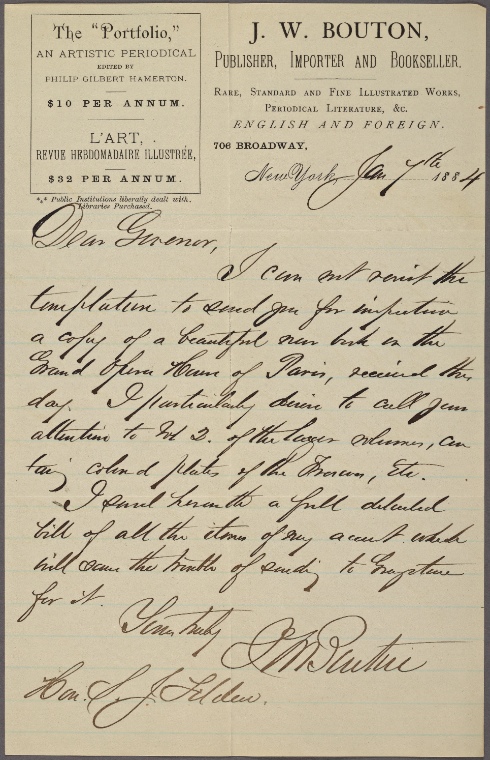 The "Portfolio,"
AN ARTISTIC PERIODICAL
EDITED BY
PHILIP GILBERT HAMERTON.
$10 PER ANNUM.
L'ART,
REVUE HEBDOMADAIRE ILLUSTRÉE,
$32 PER ANNUM.
*** Public Institutions liberally dealt with.
Libraries Purchased.
J. W. BOUTON,
PUBLISHER, IMPORTER AND BOOKSELLER.
RARE, STANDARD AND FINE ILLUSTRATED WORKS,
PERIODICAL LITERATURE, &C.
ENGLISH AND FOREIGN.
706 BROADWAY,
New York, Jan 7th 1884
Dear Governor,
I can not resist the
temptation to send you for inspection
a copy of a beautiful new book on the
Grand Opera House of Paris, received this
day. I particularly desire to call your
attention to Vol 2. of the larger volumes, con
taing colored plates of the Frescoes, etc.
I send herewith a full detailed
bill of all the items of my account which
will save the trouble of sending to Graystone
for it.
Yours truly
J W Bouton
Hon. S. J. Tilden.